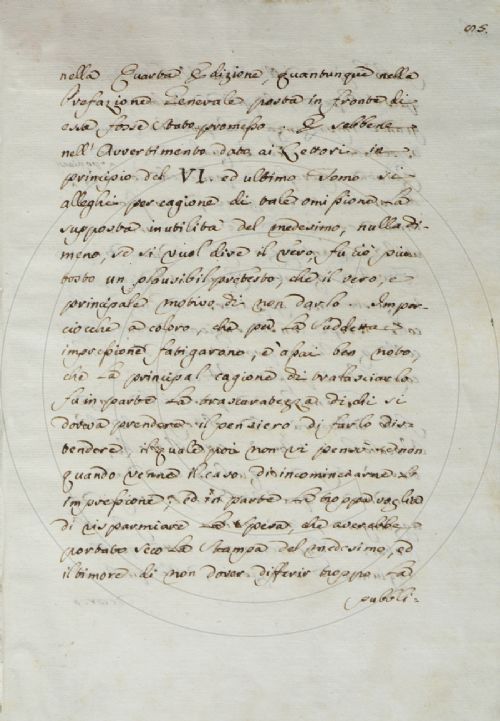 95.
nella Quarta Edizione, quantunque nella
Prefazione Generale posta in fronte di
essa fosse stato promesso. E sebbene
nell'Avvertimento dato ai Lettori in
principio del VI. ed ultimo Tomo si
alleghi per cagione di tale omissione la
supposta inutilità del medesimo, nulladi-
meno, se si vuol dire il vero, fu ciò piut
tosto un plausibil pretesto, che il vero, e
principale motivo di non darlo. Imper-
ciocchè a coloro, che per la suddetta
impressione fatigarono, è assai ben noto,
che la principal cagione di tralasciarlo
fu in parte la trascuratezza di chi si
doveva prendere il pensiero di farlo dis-
tendere, il quale poi non vi pensò se non
quando venne il caso di incominciarne la
impressione; ed in parte la troppa voglia
di risparmiare la spesa che averebbe
portato seco la Stampa del medesimo, ed
il timore di non dover differir troppo la
pubbli-